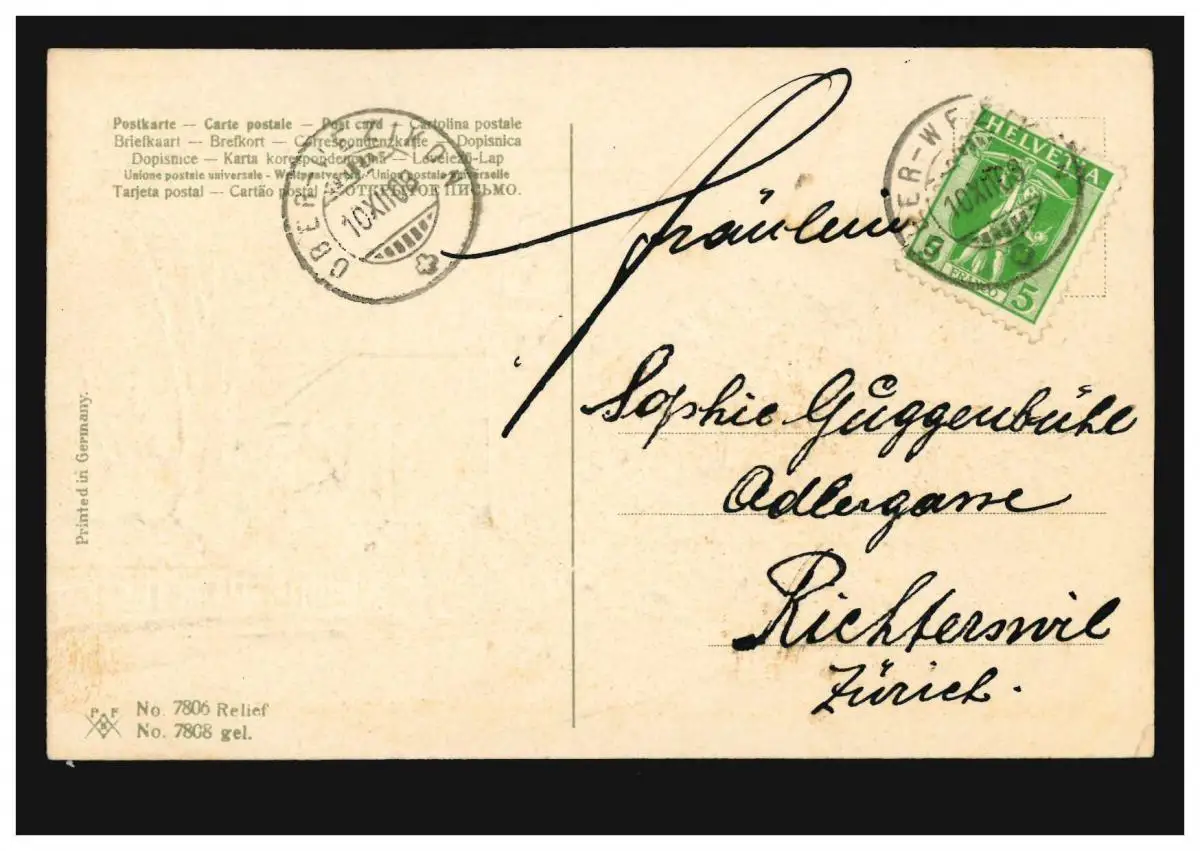 Postkarte — Carte postale — Post card — Cartolina postale
Briefkaart — Brefkort — Correspondenzkarte — Dopisnica
Dopisnice — Karta korespondencyjna — Levelező-Lap
Unione postale universale — Weltpostverein — Union postale universelle
Tarjeta postal — Cartão postal — ОТКРЫТОЕ ПИСЬМО.
OBER-WEZIKON
10.XII.09
OBER-WE
10.XII.09
HELVETIA
5 FRANCO 5
Fräulein
Sophie Guggenbühl
Adlergasse
Richterswil
Zürich.
Printed in Germany.
P F B
No. 7806 Relief
No. 7808 gel.